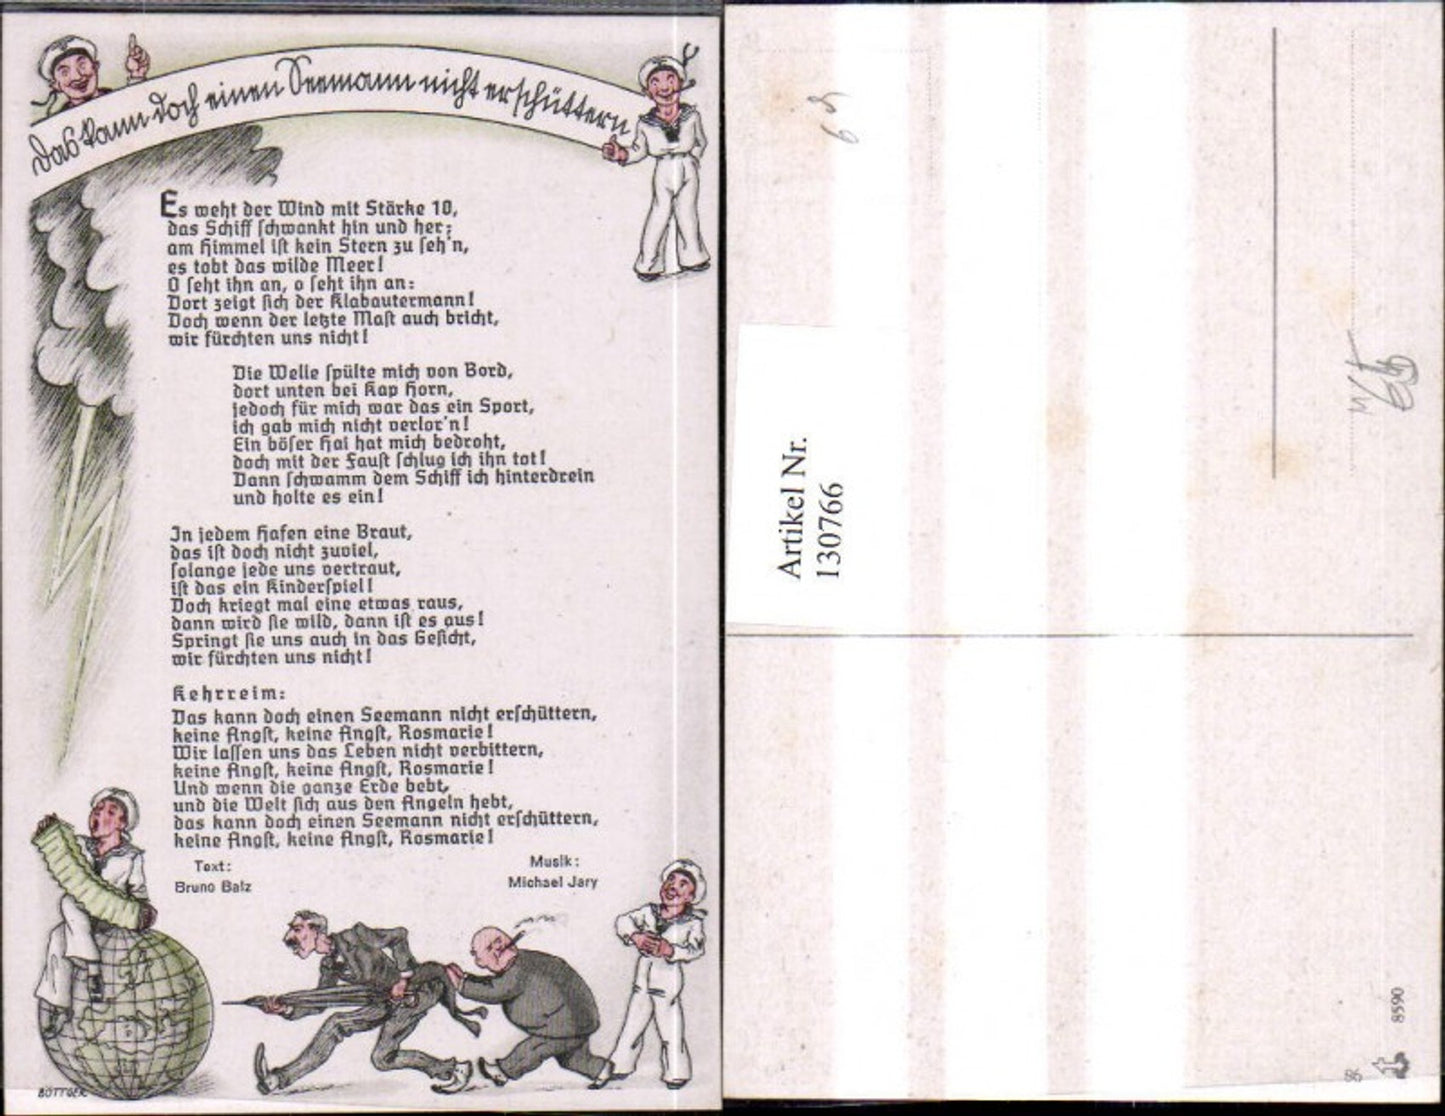 Das kann doch einen Seemann nicht erschüttern
Es weht der Wind mit Stärke 10,
das Schiff schwankt hin und her;
am Himmel ist kein Stern zu seh'n,
es tobt das wilde Meer!
O seht ihn an, o seht ihn an:
Dort zeigt sich der Klabautermann!
Doch wenn der letzte Mast auch bricht,
wir fürchten uns nicht!
Die Welle spülte mich von Bord,
dort unten bei Kap Horn,
jedoch für mich war das ein Sport,
ich gab mich nicht verlor'n!
Ein böser Hai hat mich bedroht,
doch mit der Faust schlug ich ihn tot!
Dann schwamm dem Schiff ich hinterdrein
und holte es ein!
In jedem Hafen eine Braut,
das ist doch nicht zuviel,
solange jede uns vertraut,
ist das ein Kinderspiel!
Doch kriegt mal eine etwas raus,
dann wird sie wild, dann ist es aus!
Springt sie uns auch in das Gesicht,
wir fürchten uns nicht!
Kehrreim:
Das kann doch einen Seemann nicht erschüttern,
keine Angst, keine Angst, Rosmarie!
Wir lassen uns das Leben nicht verbittern,
keine Angst, keine Angst, Rosmarie!
Und wenn die ganze Erde bebt,
und die Welt sich aus den Angeln hebt,
das kann doch einen Seemann nicht erschüttern,
keine Angst, keine Angst, Rosmarie!
Text:
Bruno Balz
Musik:
Michael Jary
BÖTTGER
Artikel Nr.
130766
8590
86